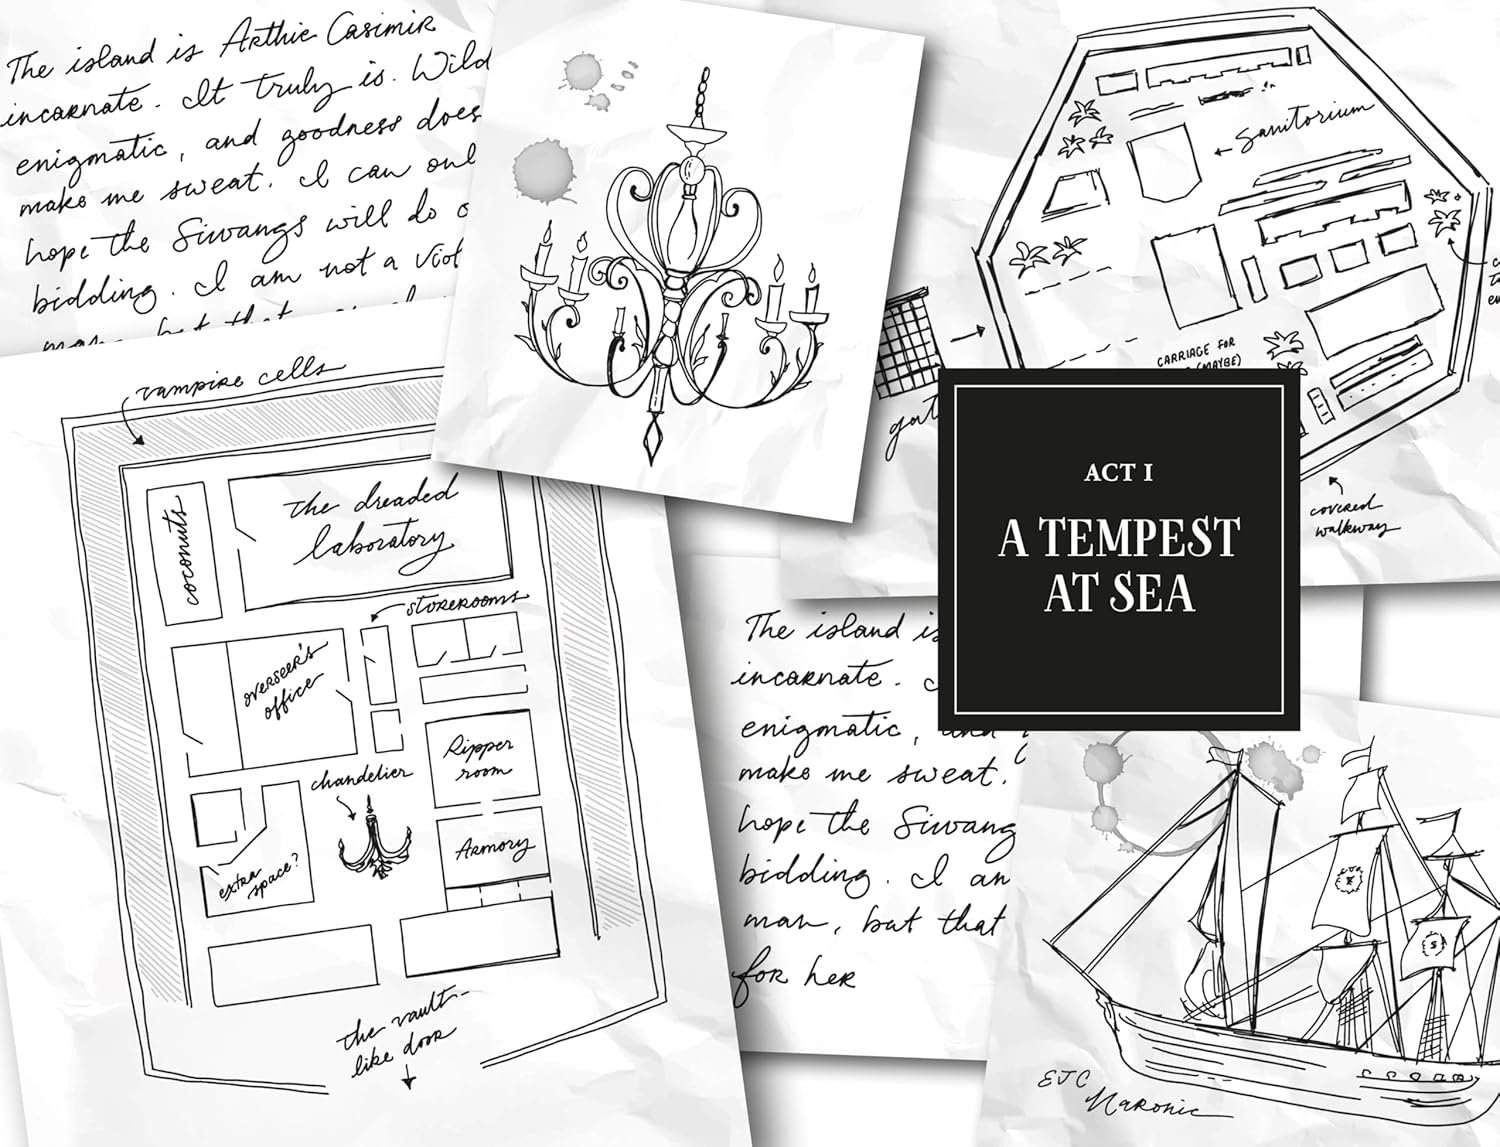 The island is Arthie Casimir
incarnate. It truly is. Wild
enigmatic, and goodness does
make me sweat. I can onl
hope the Siwangs will do
bidding. I am not a viol
man, but that
vampire cells
coconuts
the dreaded
laboratory
storerooms
overseer's
office
Ripper
room
chandelier
Armory
extra
space?
the vault-
like door
Sanitorium
CARRIAGE FOR
(MAYBE)
gat
covered
walkway
ACT I
A TEMPEST
AT SEA
The island is
incarnate.
enigmatic, and
make me sweat.
hope the Siwang
bidding. I am
man, but that
for her
EJC
Naronic